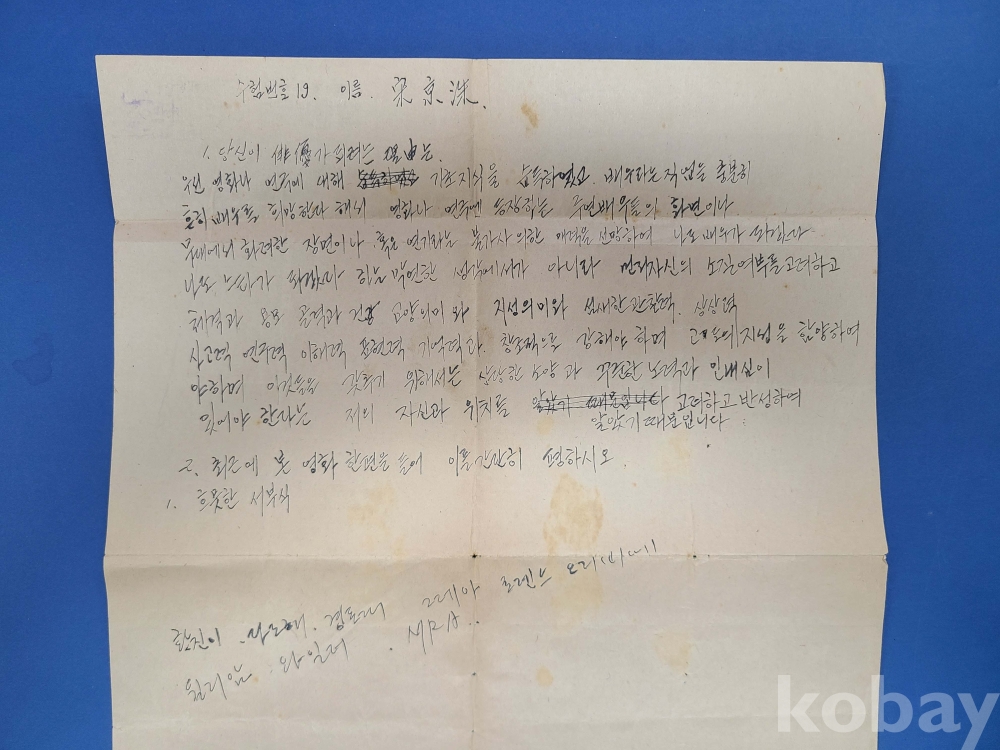 수험번호 19. 이름. 宋京洙.
1. 당신이 俳優가 되려는 理由는.
우선 영화나 연극에 대해 기초지식을 습득하였고. 배우라는 직업을 충분히
흔히 배우를 희망한다 해서 영화나 연극에 등장하는 주연배우들의 화면이나
무대에서 화려한 장면이나 혹은 연기라는 불가사의한 매력을 선망하여 나도 배우가 되겠다
나도 되겠다 하는 막연한 생각에서가 아니라 먼저 자신의 소질여부를 고려하고
체격과 용모 골격과 건강 교양의미와 지성의미와 섬세한 관찰력. 상상력
사고력 연구력 이해력 표현력 기억력과. 창조적으로 강해야 하며 고도의 지성을 함양하여
야하며 이것들을 갖추기 위해서는 상당한 소양과 꾸준한 노력과 인내심이
있어야 한다는 저의 자신과 위치를 알았기 때문입니다 고려하고 반성하여
알았기 때문입니다.
2. 최근에 본 영화 한편을 들어 이를 간단히 평하시오.
1. 흐뭇한 서부식
황진이. 경포대 로렌스 오리비에
윌리암 와일더. MRA.
kobay